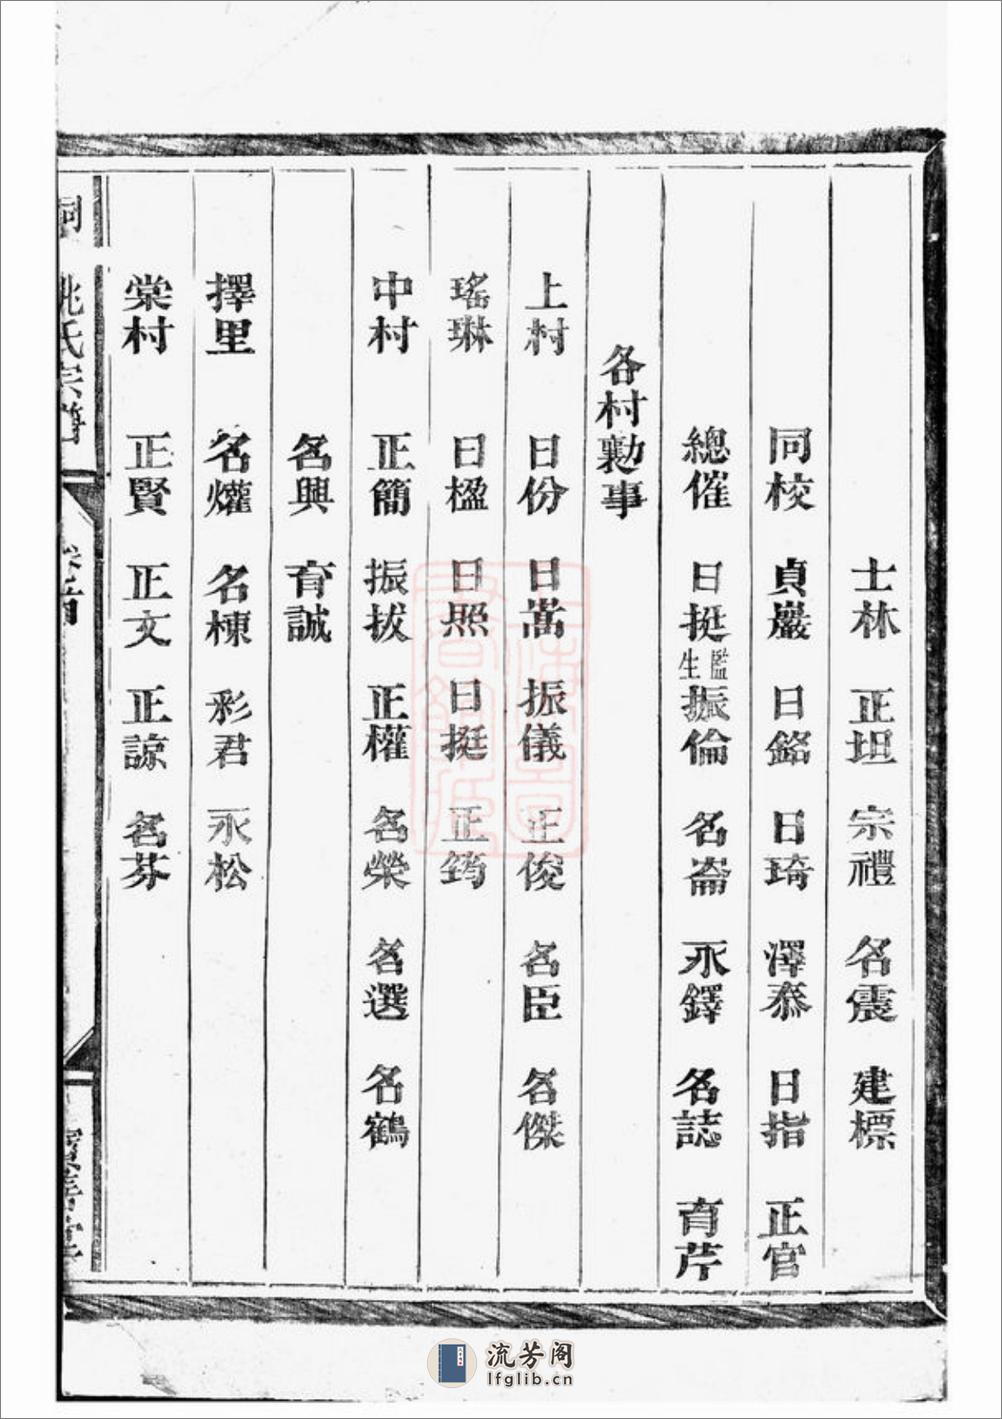 士林 正坦 宗禮 名震 建標
同校 貞巖 日銘 日琦 澤泰 日指 正官
總催 日挺 監生 振倫 名崙 永鐸 名誌 育芹
各村勷事
上村 日份 日嵩 振儀 正俊 名臣 名傑
瑤琳 日楹 日照 日挺 正筠
中村 正簡 振拔 正權 名榮 名選 名鶴
名興 育誠
擇里 名爟 名棟 彩君 永松
棠村 正賢 正文 正諒 名芬
姚氏宗譜
卷首
流芳阁
lfglib.cn